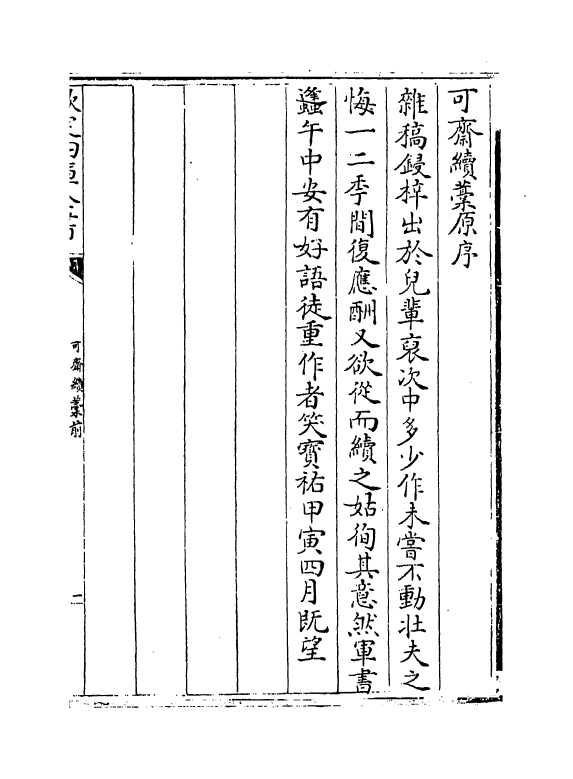 可齋續藁原序
雜稿鋟梓出於兒輩裒次中多少作未嘗不動壯夫之
悔一二季間復應酬又欲從而續之姑徇其意然軍書
蠭午中安有好語徒重作者笑寳祐甲寅四月既望
欽定四庫全書
可齋續藁前
二